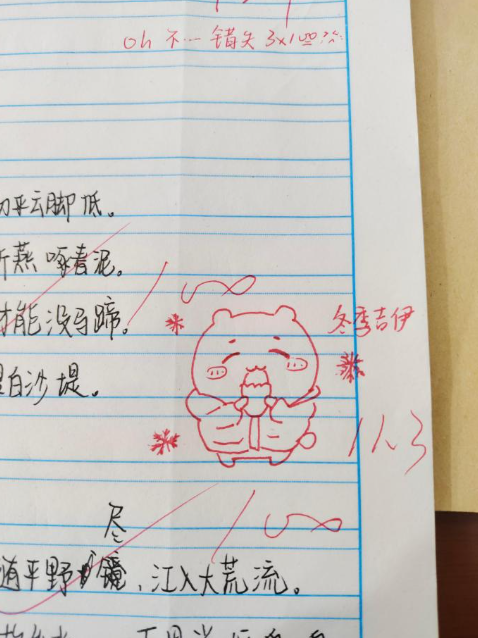 oh 不… 错失 3x100分
初平云脚低。
新燕啄春泥。
才能没马蹄。
100
冬季吉伊
里白沙堤。
11.3
尽
100
随平野 , 江入大荒流。